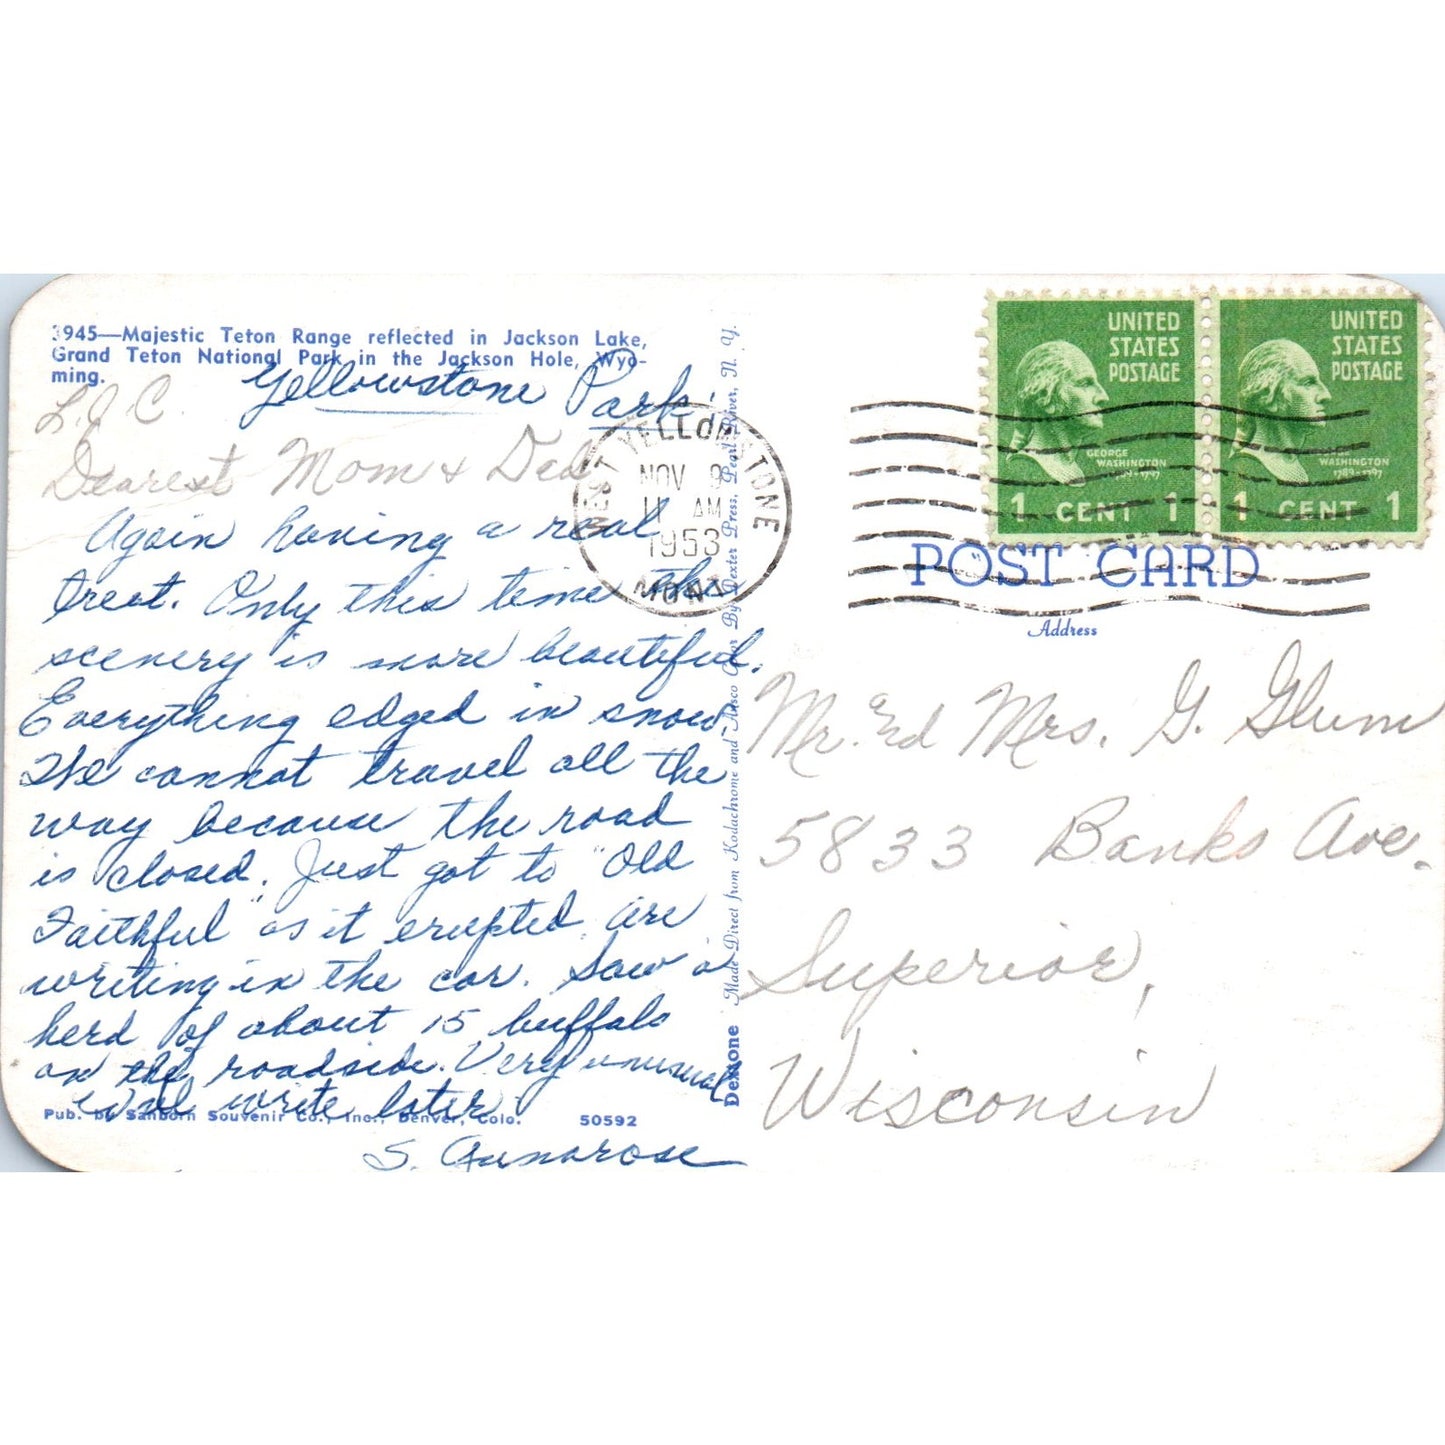 3945—Majestic Teton Range reflected in Jackson Lake,
Grand Teton National Park in the Jackson Hole, Wyo-
ming.
Yellowstone Park
Dearest Mom & Dad
Again having a real
treat. Only this time the
scenery is more beautiful.
Everything edged in snow.
We cannot travel all the
way because the road
is closed. Just got to "Old
Faithful" as it erupted. Are
writing in the car. Saw a
herd of about 15 buffalo
on the roadside. Very unusual
Will write later
Pub. by Sanborn Souvenir Co., Inc., Denver, Colo. 50592
S.
WEST YELLOWSTONE
NOV 9
11 AM
1953
MONT
Dextone Made Direct from Kodachrome and Ansco Color By Dexter Press, Pearl River, N. Y.
UNITED
STATES
POSTAGE
GEORGE
WASHINGTON
1789-1797
1 CENT 1
UNITED
STATES
POSTAGE
GEORGE
WASHINGTON
1789-1797
1 CENT 1
POST CARD
Address
Mr. and Mrs. G. Glum
5833 Banks Ave.
Superior,
Wisconsin